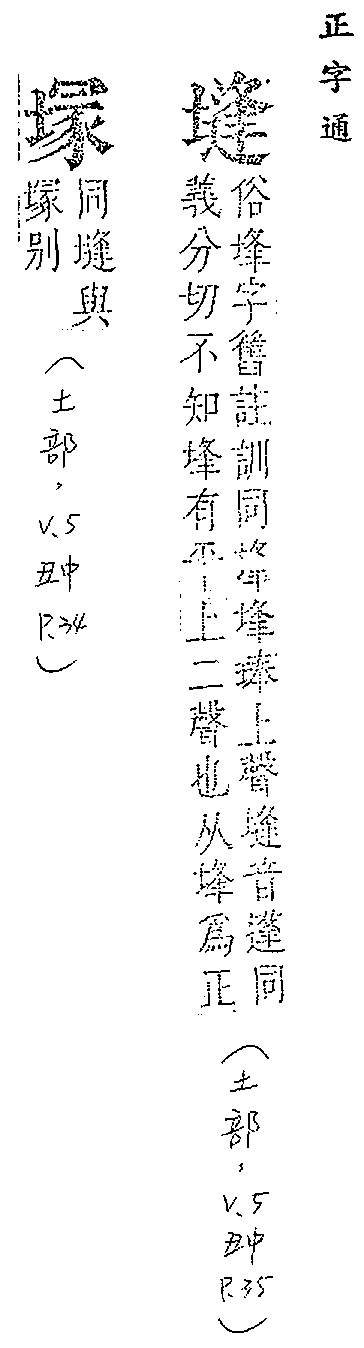 正字通
塳
俗埄字舊註訓同埄埲上聲塳音蓬同
義分切不知埄有平上二聲也从埄為正
(土部,V.5 丑中 P.35)
塜
同塳與
塚别
(土部,V.5 丑中 P.34)